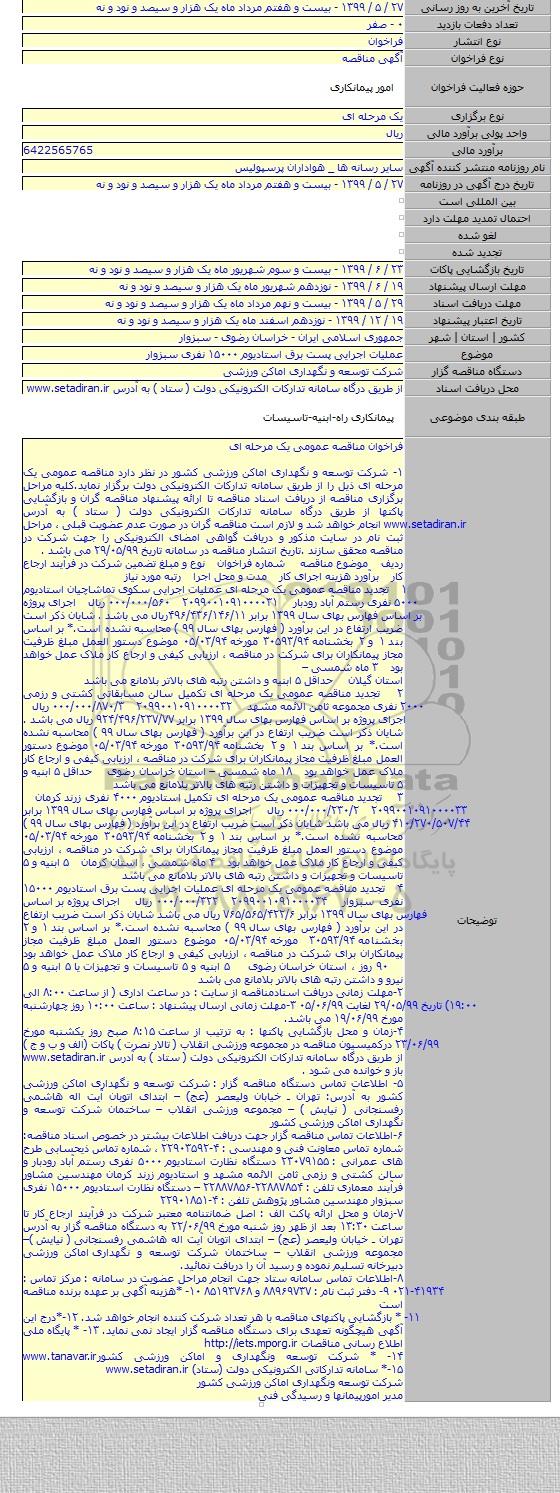 تاریخ آخرین به روز رسانی ۲۷ / ۵ / ۱۳۹۹ - بیست و هفتم مرداد ماه یک هزار و سیصد و نود و نه
تعداد دفعات بازدید ۰ - صفر
نوع انتشار فراخوان
نوع فراخوان آگهی مناقصه
حوزه فعالیت فراخوان امور پیمانکاری
نوع برگزاری یک مرحله ای
واحد پولی برآورد مالی ریال
برآورد مالی 6422565765
نام روزنامه منتشر کننده آگهی سایر رسانه ها _ هواداران پرسپولیس
تاریخ درج آگهی در روزنامه ۲۷ / ۵ / ۱۳۹۹ - بیست و هفتم مرداد ماه یک هزار و سیصد و نود و نه
بین المللی است
احتمال تمدید مهلت دارد
لغو شده
تجدید شده
تاریخ بازگشایی پاکات ۲۳ / ۶ / ۱۳۹۹ - بیست و سوم شهریور ماه یک هزار و سیصد و نود و نه
مهلت ارسال پیشنهاد ۱۹ / ۶ / ۱۳۹۹ - نوزدهم شهریور ماه یک هزار و سیصد و نود و نه
مهلت دریافت اسناد ۲۹ / ۵ / ۱۳۹۹ - بیست و نهم مرداد ماه یک هزار و سیصد و نود و نه
تاریخ اعتبار پیشنهاد ۱۹ / ۱۲ / ۱۳۹۹ - نوزدهم اسفند ماه یک هزار و سیصد و نود و نه
کشور | استان | شهر جمهوری اسلامی ایران - خراسان رضوی - سبزوار
موضوع عملیات اجرایی پست برق استادیوم ۱۵۰۰۰ نفری سبزوار
دستگاه مناقصه گزار شرکت توسعه و نگهداری اماکن ورزشی
محل دریافت اسناد از طریق درگاه سامانه تدارکات الکترونیکی دولت ( ستاد ) به آدرس www.setadiran.ir
طبقه بندی موضوعی پیمانکاری راه-ابنیه-تاسیسات
توضیحات
فراخوان مناقصه عمومی یک مرحله ای
۱- شرکت توسعه و نگهداری اماکن ورزشی کشور در نظر دارد مناقصه عمومی یک
مرحله ای ذیل را از طریق سامانه تدارکات الکترونیکی دولت برگزار نماید.کلیه مراحل
برگزاری مناقصه از دریافت اسناد مناقصه تا ارائه پیشنهاد مناقصه گران و بازگشایی
پاکتها از طریق درگاه سامانه تدارکات الکترونیکی دولت ( ستاد ) به آدرس
www.setadiran.ir انجام خواهد شد و لازم است مناقصه گران در صورت عدم عضویت قبلی ، مراحل
ثبت نام در سایت مذکور و دریافت گواهی امضای الکترونیکی را جهت شرکت در
مناقصه محقق سازند .تاریخ انتشار مناقصه در سامانه تاریخ ۲۹/۰۵/۹۹ می باشد .
ردیف موضوع مناقصه شماره فراخوان نوع و مبلغ تضمین شرکت در فرآیند ارجاع
کار برآورد هزینه اجرای کار مدت و محل اجرا رتبه مورد نیاز
۱ تجدید مناقصه عمومی یک مرحله ای عملیات اجرایی سکوی تماشاچیان استادیوم
۵۰۰۰ نفری رستم آباد رودبار ۲۰۹۹۰۰۱۰۹۱۰۰۰۰۳۱ ۰۰۰/۰۰۰/۵۶۰ ریال اجرای پروژه
بر اساس فهارس بهای سال ۱۳۹۹ برابر ۴۹۶/۴۳۶/۱۴۶/۱۱ریال می باشد . شایان ذکر است
ضریب ارتفاع در این برآورد ( فهارس بهای سال ۹۹ ) محاسبه نشده است.* بر اساس
بند ۱ و ۲ بخشنامه ۳۰۵۹۳/۹۴ مورخه ۰۵/۰۳/۹۴ موضوع دستور العمل مبلغ ظرفیت
مجاز پیمانکاران برای شرکت در مناقصه ، ارزیابی کیفی و ارجاع کار ملاک عمل خواهد
بود ۳ ماه شمسی –
استان گیلان حداقل ۵ ابنیه و داشتن رتبه های بالاتر بلامانع می باشد
۲ تجدید مناقصه عمومی یک مرحله ای تکمیل سالن مسابقاتی کشتی و رزمی
۲۰۰۰ نفری مجموعه ثامن الائمه مشهد ۲۰۹۹۰۰۱۰۹۱۰۰۰۰۳۲ ۰۰۰/۰۰۰/۸۷۰/۳ ریال
اجرای پروژه بر اساس فهارس بهای سال ۱۳۹۹ برابر ۹۲۴/۴۹۶/۲۳۷/۷۷ ریال می باشد .
شایان ذکر است ضریب ارتفاع در این برآورد ( فهارس بهای سال ۹۹ ) محاسبه نشده
است.* بر اساس بند ۱ و ۲ بخشنامه ۳۰۵۹۳/۹۴ مورخه ۰۵/۰۳/۹۴ موضوع دستور
العمل مبلغ ظرفیت مجاز پیمانکاران برای شرکت در مناقصه ، ارزیابی کیفی و ارجاع کار
ملاک عمل خواهد بود ۱۸ ماه شمسی – استان خراسان رضوی حداقل ۵ ابنیه و
۵ تاسیسات و تجهیزات و داشتن رتبه های بالاتر بلامانع می باشد
۳ تجدید مناقصه عمومی یک مرحله ای تکمیل استادیوم ۴۰۰۰ نفری زرند کرمان
۲۰۹۹۰۰۱۰۹۱۰۰۰۰۳۳ ۰۰۰/۰۰۰/۲۳۰/۲ ریال اجرای پروژه بر اساس فهارس بهای سال ۱۳۹۹ برابر
۴۱۰/۲۷۰/۵۰۷/۴۴ ریال می باشد شایان ذکر است ضریب ارتفاع در این برآورد ( فهارس بهای سال ۹۹ )
محاسبه نشده است.* بر اساس بند ۱ و ۲ بخشنامه ۳۰۵۹۳/۹۴ مورخه ۰۵/۰۳/۹۴
موضوع دستور العمل مبلغ ظرفیت مجاز پیمانکاران برای شرکت در مناقصه ، ارزیابی
کیفی و ارجاع کار ملاک عمل خواهد بود ۴ ماه شمسی . استان کرمان ۵ ابنیه و ۵
تاسیسات و تجهیزات و داشتن رتبه های بالاتر بلامانع می باشد
۴ تجدید مناقصه عمومی یک مرحله ای عملیات اجرایی پست برق استادیوم ۱۵۰۰۰
نفری سبزوار ۲۰۹۹۰۰۱۰۹۱۰۰۰۰۳۴ ۰۰۰/۰۰۰/۳۲۴ ریال اجرای پروژه بر اساس
فهارس بهای سال ۱۳۹۹ برابر ۷۶۵/۵۶۵/۴۲۲/۶ ریال می باشد شایان ذکر است ضریب ارتفاع
در این برآورد ( فهارس بهای سال ۹۹ ) محاسبه نشده است.* بر اساس بند ۱ و ۲
بخشنامه ۳۰۵۹۳/۹۴ مورخه ۰۵/۰۳/۹۴ موضوع دستور العمل مبلغ ظرفیت مجاز
پیمانکاران برای شرکت در مناقصه ، ارزیابی کیفی و ارجاع کار ملاک عمل خواهد بود
۹۰ روز ، استان خراسان رضوی ۵ ابنیه و ۵ تاسیسات و تجهیزات یا ۵ ابنیه و ۵
نیرو و داشتن رتبه های بالاتر بلامانع می باشد
۲-مهلت زمانی دریافت اسنادمناقصه از سایت : در ساعت اداری ( از ساعت ۸:۰۰ الی
۱۹:۰۰) تاریخ ۲۹/۰۵/۹۹ لغایت ۰۵/۰۶/۹۹ ۳-مهلت زمانی ارسال پیشنهاد : ساعت ۱۰:۰۰ روز چهارشنبه
مورخ ۱۹/۰۶/۹۹ می باشد.
۴-زمان و محل بازگشایی پاکتها : به ترتیب از ساعت ۸:۱۵ صبح روز یکشنبه مورخ
۲۳/۰۶/۹۹ درکمیسیون مناقصه در مجموعه ورزشی انقلاب ( تالار نصرت ) پاکات (الف و ب و ج )
از طریق درگاه سامانه تدارکات الکترونیکی دولت ( ستاد ) به آدرس www.setadiran.ir
باز و خوانده می شود .
۵- اطلاعات تماس دستگاه مناقصه گزار : شرکت توسعه و نگهداری اماکن ورزشی
کشور به آدرس: تهران ـ خیابان ولیعصر (عج) – ابتدای اتوبان آیت اله هاشمی
رفسنجانی ( نیایش ) – مجموعه ورزشی انقلاب – ساختمان شرکت توسعه و
نگهداری اماکن ورزشی کشور
۶-اطلاعات تماس مناقصه گزار جهت دریافت اطلاعات بیشتر در خصوص اسناد مناقصه:
شماره تماس معاونت فنی و مهندسی : ۴-۲۲۹۰۳۵۹۲ ، شماره تماس ذیحسابی طرح
های عمرانی : ۲۳۰۷۹۱۵۵ دستگاه نظارت استادیوم ۵۰۰۰ نفری رستم آباد رودبار و
سالن کشتی و رزمی ثامن الائمه مشهد و استادیوم زرند کرمان مهندسین مشاور
فرآیند معماری تلفن : ۲۲۸۸۷۸۵۴-۲۲۸۸۷۸۵۶ – دستگاه نظارت استادیوم ۱۵۰۰۰ نفری
سبزوار مهندسین مشاور پژوهش تلفن : ۴-۲۲۹۰۱۸۵۱
۷-زمان و محل ارائه پاکت الف : اصل ضمانتنامه معتبر شرکت در فرآیند ارجاع کار تا
ساعت ۱۳:۳۰ بعد از ظهر روز شنبه مورخ ۲۲/۰۶/۹۹ به دستگاه مناقصه گزار به آدرس
تهران ـ خیابان ولیعصر (عج) – ابتدای اتوبان آیت اله هاشمی رفسنجانی ( نیایش )–
مجموعه ورزشی انقلاب – ساختمان شرکت توسعه و نگهداری اماکن ورزشی
دبیرخانه تسلیم نموده و رسید آن را دریافت نمائید.
۸-اطلاعات تماس سامانه ستاد جهت انجام مراحل عضویت در سامانه : مرکز تماس :
۰۲۱-۴۱۹۳۴ ۹- دفتر ثبت نام : ۸۸۹۶۹۷۳۷ و ۸۵۱۹۳۷۶۸ ۱۰- *هزینه آگهی بر عهده برنده مناقصه
است
۱۱- * بازگشایی پاکتهای مناقصه با هر تعداد شرکت کننده انجام خواهد شد. ۱۲-*درج این
آگهی هیچگونه تعهدی برای دستگاه مناقصه گزار ایجاد نمی نماید. ۱۳- * پایگاه ملی
اطلاع رسانی مناقصات http://iets.mporg.ir
۱۴- * شرکت توسعه ونگهداری و اماکن ورزشی کشورwww.tanavar.ir
۱۵-* سامانه تدارکاتی الکترونیکی دولت (ستاد) www.setadiran.ir
شرکت توسعه ونگهداری اماکن ورزشی کشور
مدیر امورپیمانها و رسیدگی فنی